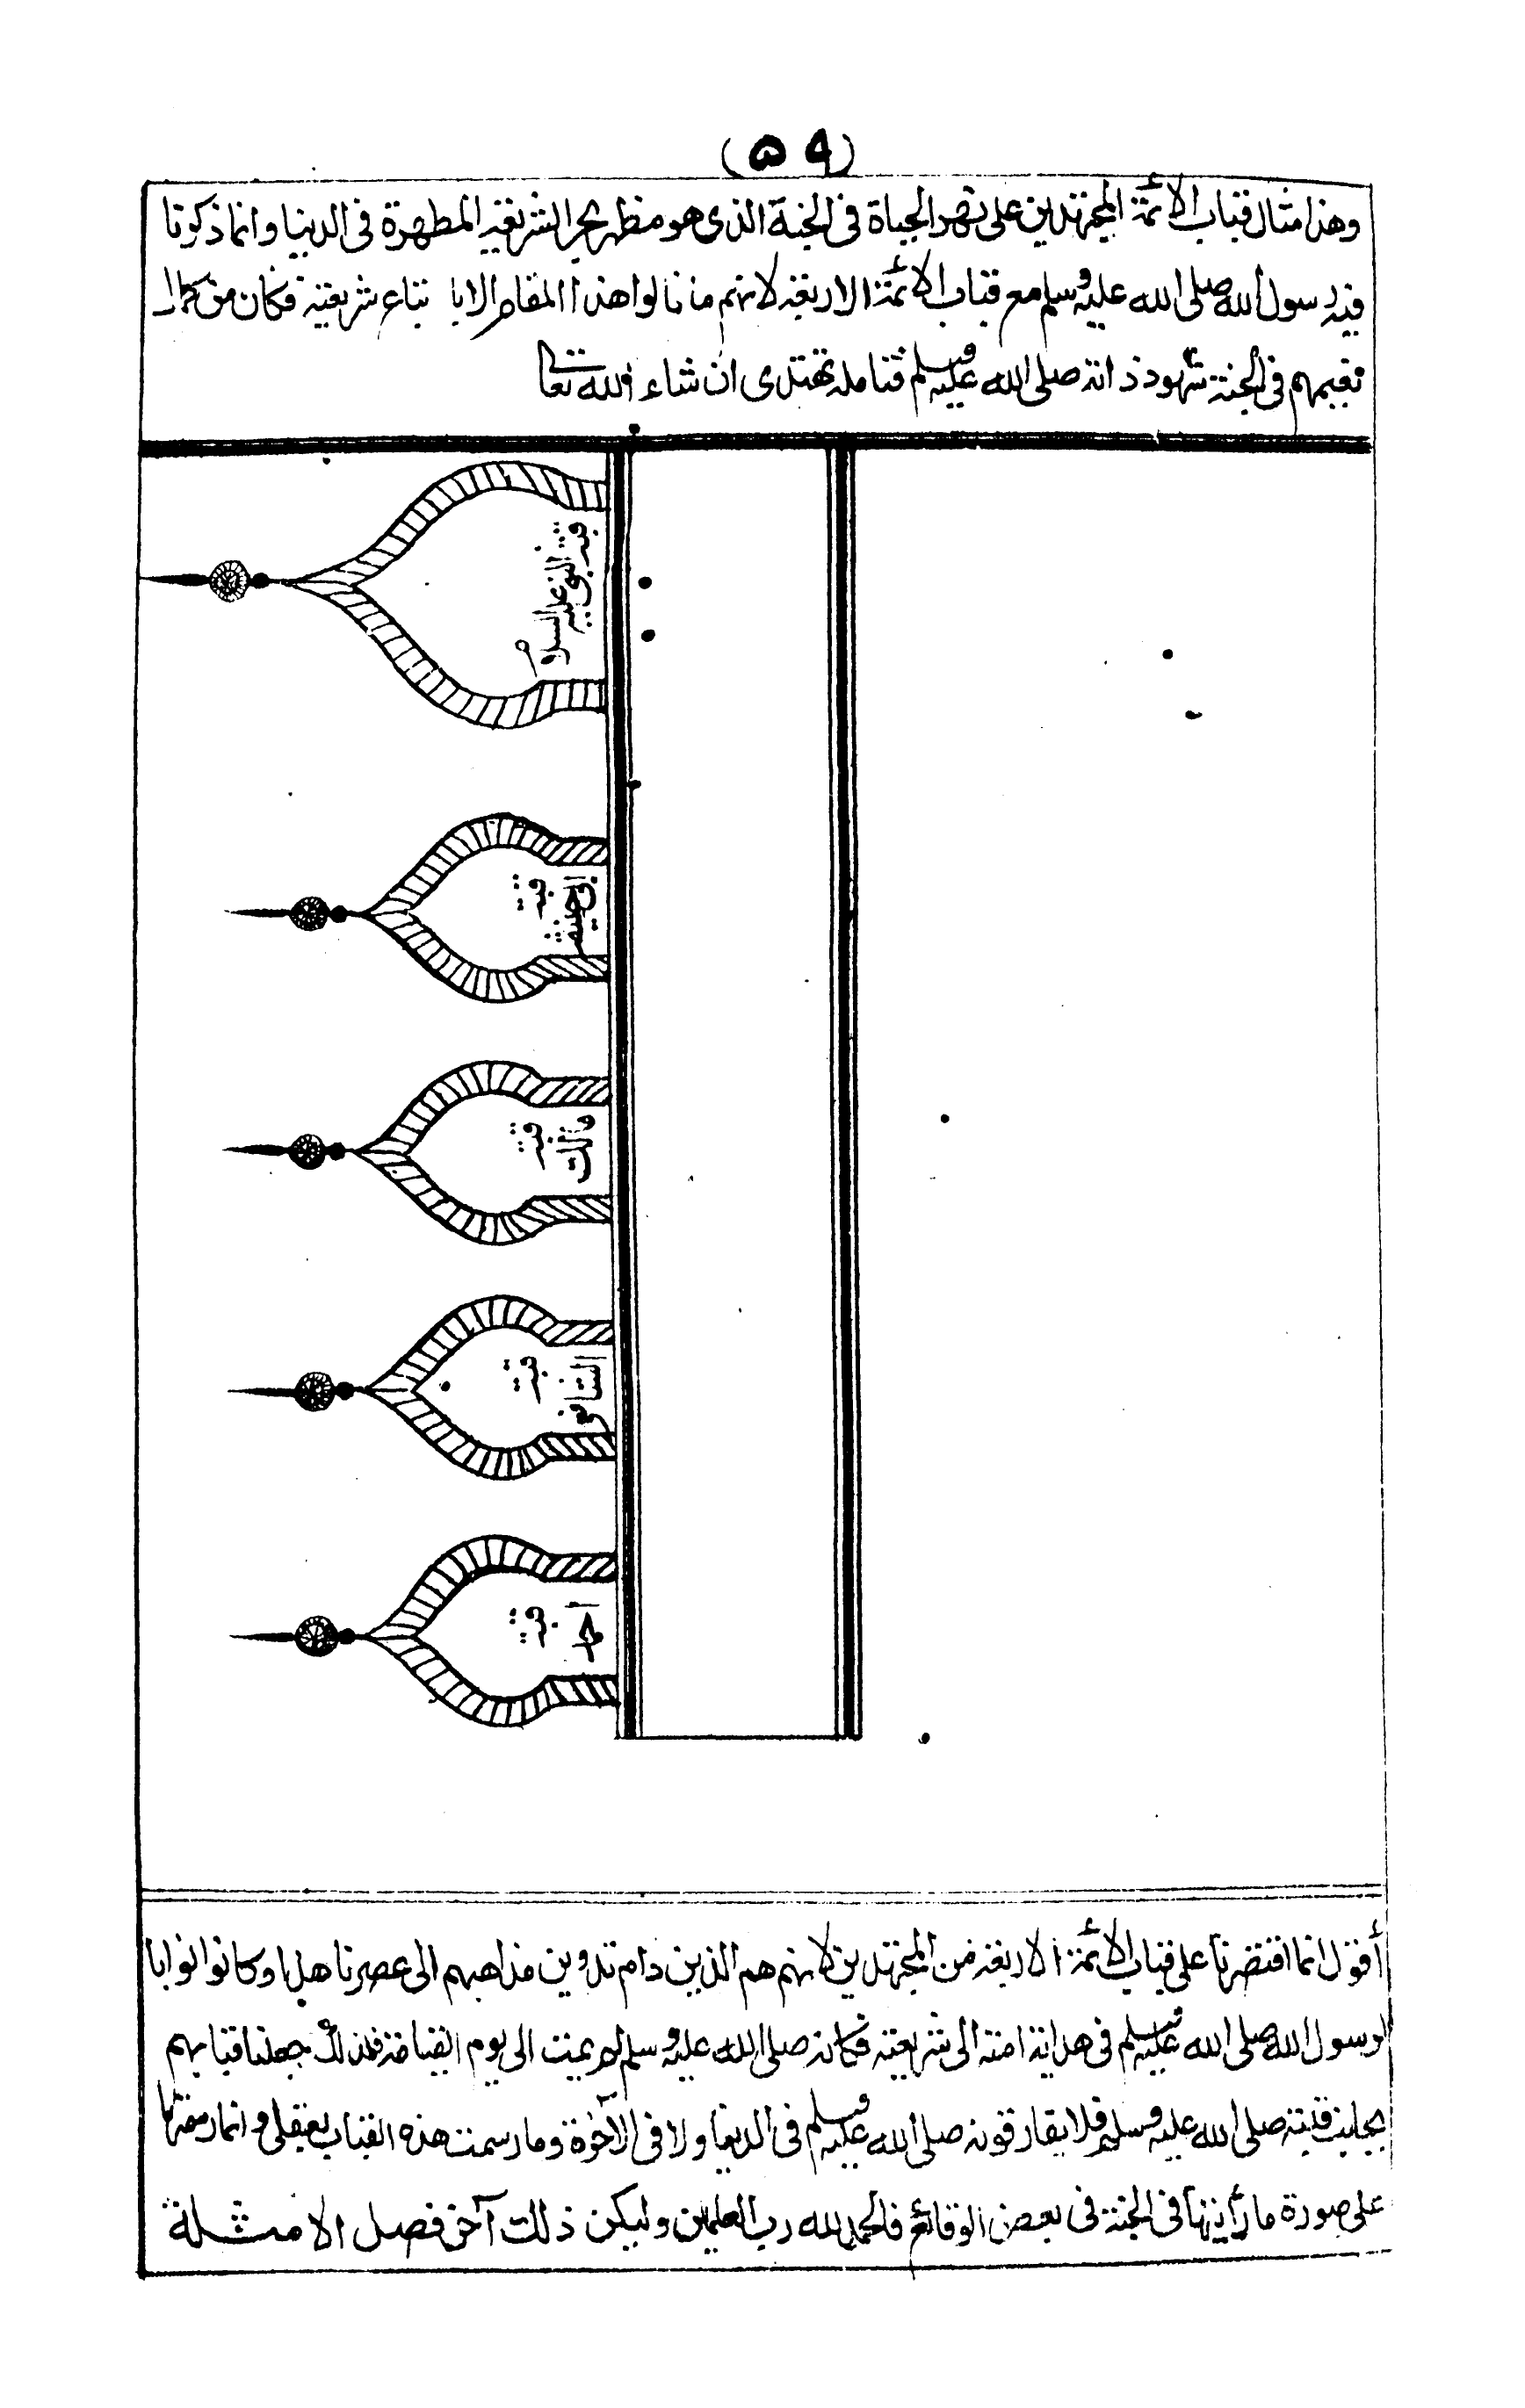 (٥٩)
وهذا مثال قباب الأئمة المجتهدين على نهر الحياة فى الجنة الذى هو مظهر بحر الشريعة المطهرة فى الدنيا وانما ذكرنا
فيه رسول الله صلى الله عليه وسلم مع قباب الأئمة الاربعة لانهم ما نالوا هذا المقام الا باتباع شريعته فكان من كمال
نعيمهم فى الجنة شهود ذاته صلى الله عليه وسلم فتامله تهتدى ان شاء الله تعالى
قبة النبى عليه السلام
قبة
ابى حنيفة
قبة
مالك
قبة
الشافعى
قبة
أحمد
أقول انما اقتصرنا على قباب الأئمة الاربعة من المجتهدين لانهم هم الذين دام تدوين مذاهبهم الى عصرنا هذا وكانوا نوابا
لرسول الله صلى الله عليه وسلم فى هداية امته الى شريعته فكانه صلى الله عليه وسلم لم يمت الى يوم القيامة فلذلك جعلنا قبابهم
بجانب قبته صلى الله عليه وسلم فلا يفارقونه صلى الله عليه وسلم فى الدنيا ولا فى الآخرة وما رسمت هذه القباب بعقلى وانما رسمتها
على صورة ما رأيتها فى الجنة فى بعض الوقائع فالحمد لله رب العلمين وليكن ذلك آخر فصل الامثلة